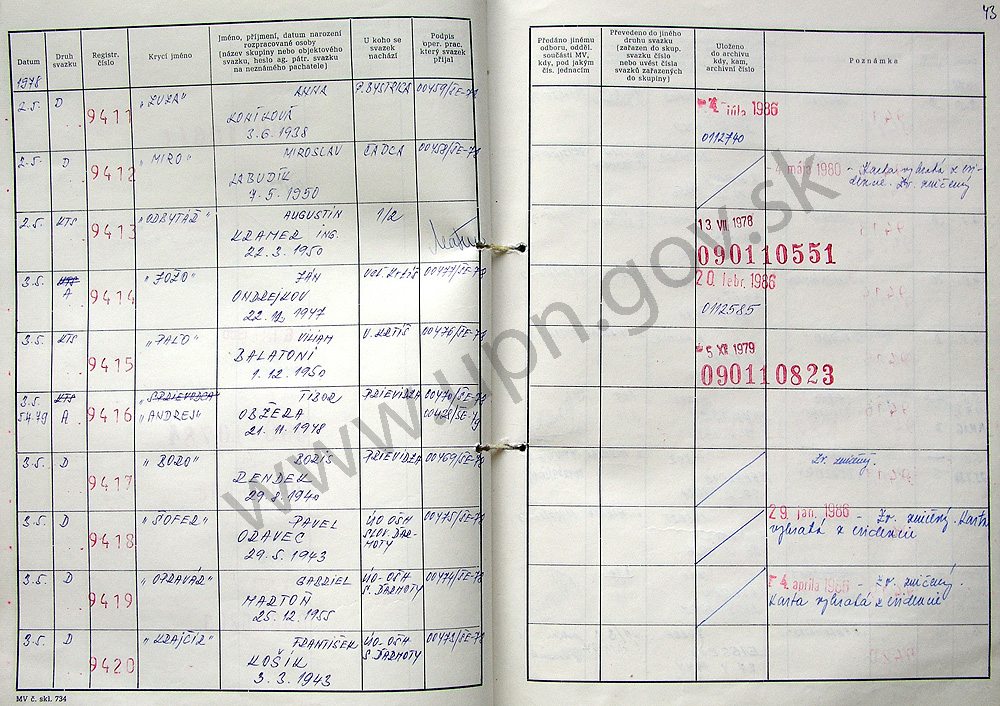 43
Datum
Druh svazku
Registr. číslo
Krycí jméno
Jméno, příjmení, datum narození rozpracované osoby
(název skupiny nebo objektového svazku, heslo ag. pátr. svazku na neznámého pachatele)
U koho se svazek nachází
Podpis oper. prac. který svazek přijal
Předáno jinému odboru, odděl. součásti MV, kdy, pod jakým čís. jednacím
Převedeno do jiného druhu svazku (zařazen do skup. svazku číslo nebo uvést čísla svazků zařazených do skupiny)
Uloženo do archivu kdy, kam, archivní číslo
Poznámka
1978
2.5. D 9411 "ZUZA" ANNA P. BYSTRICA
3.6.1938
júla 1986
0112740
2.5. D 9412 "MIRO" MIROSLAV ČADCA
LABUDÍK
7.5.1950
4. mája 1980 - Karta vybratá z evidencie. Zv. zničený
2.5. KTS 9413 "ODBYTÁŘ" AUGUSTIN 1/2
KRAMER ING.
22.3.1950
13. VII 1978
090110551
3.5. KTS A 9414 "JOŽO" JÁN 00477/ŠE-78
ONDREJKOV
1947
20. febr. 1986
0112585
3.5. KTS 9415 "PAĽO" VILIAM V. KRTÍŠ 00476/ŠE-78
BALATONI
1.12.1950
5 XII 1979
090110823
3.5. KTS 9416 TIBOR PRIEVIDZA 00470/ŠE-78
5.4.79 A "ANDREJ" OBŽERA 00428/ŠE-79
21.11.1948
3.5. D 9417 "BORO" BORIS PRIEVIDZA 00469/ŠE-78
RENDEK
1940
Zv. zničený.
3.5. D 9418 "ŠOFER" PAVEL ÚO OŠH SLOV. ĎARMOTY 00475/ŠE-78
ORAVEC
29.5.1943
29. jan. 1986 - Zv. zničený. Karta vybratá z evidencie
3.5. D 9419 "OPRAVÁR" GABRIEL ÚO-OŠH S. ĎARMOTY 00474/ŠE-78
MARTOŇ
25.12.1955
4. apríla 1986 - Zv. zničený.
Karta vybratá z evidencie
3.5. D 9420 "KRAJČÍR" FRANTIŠEK ÚO-OŠH S. ĎARMOTY 00473/ŠE-78
KOŠÍK
3.3.1943
MV č. skl. 734
www.upn.gov.sk